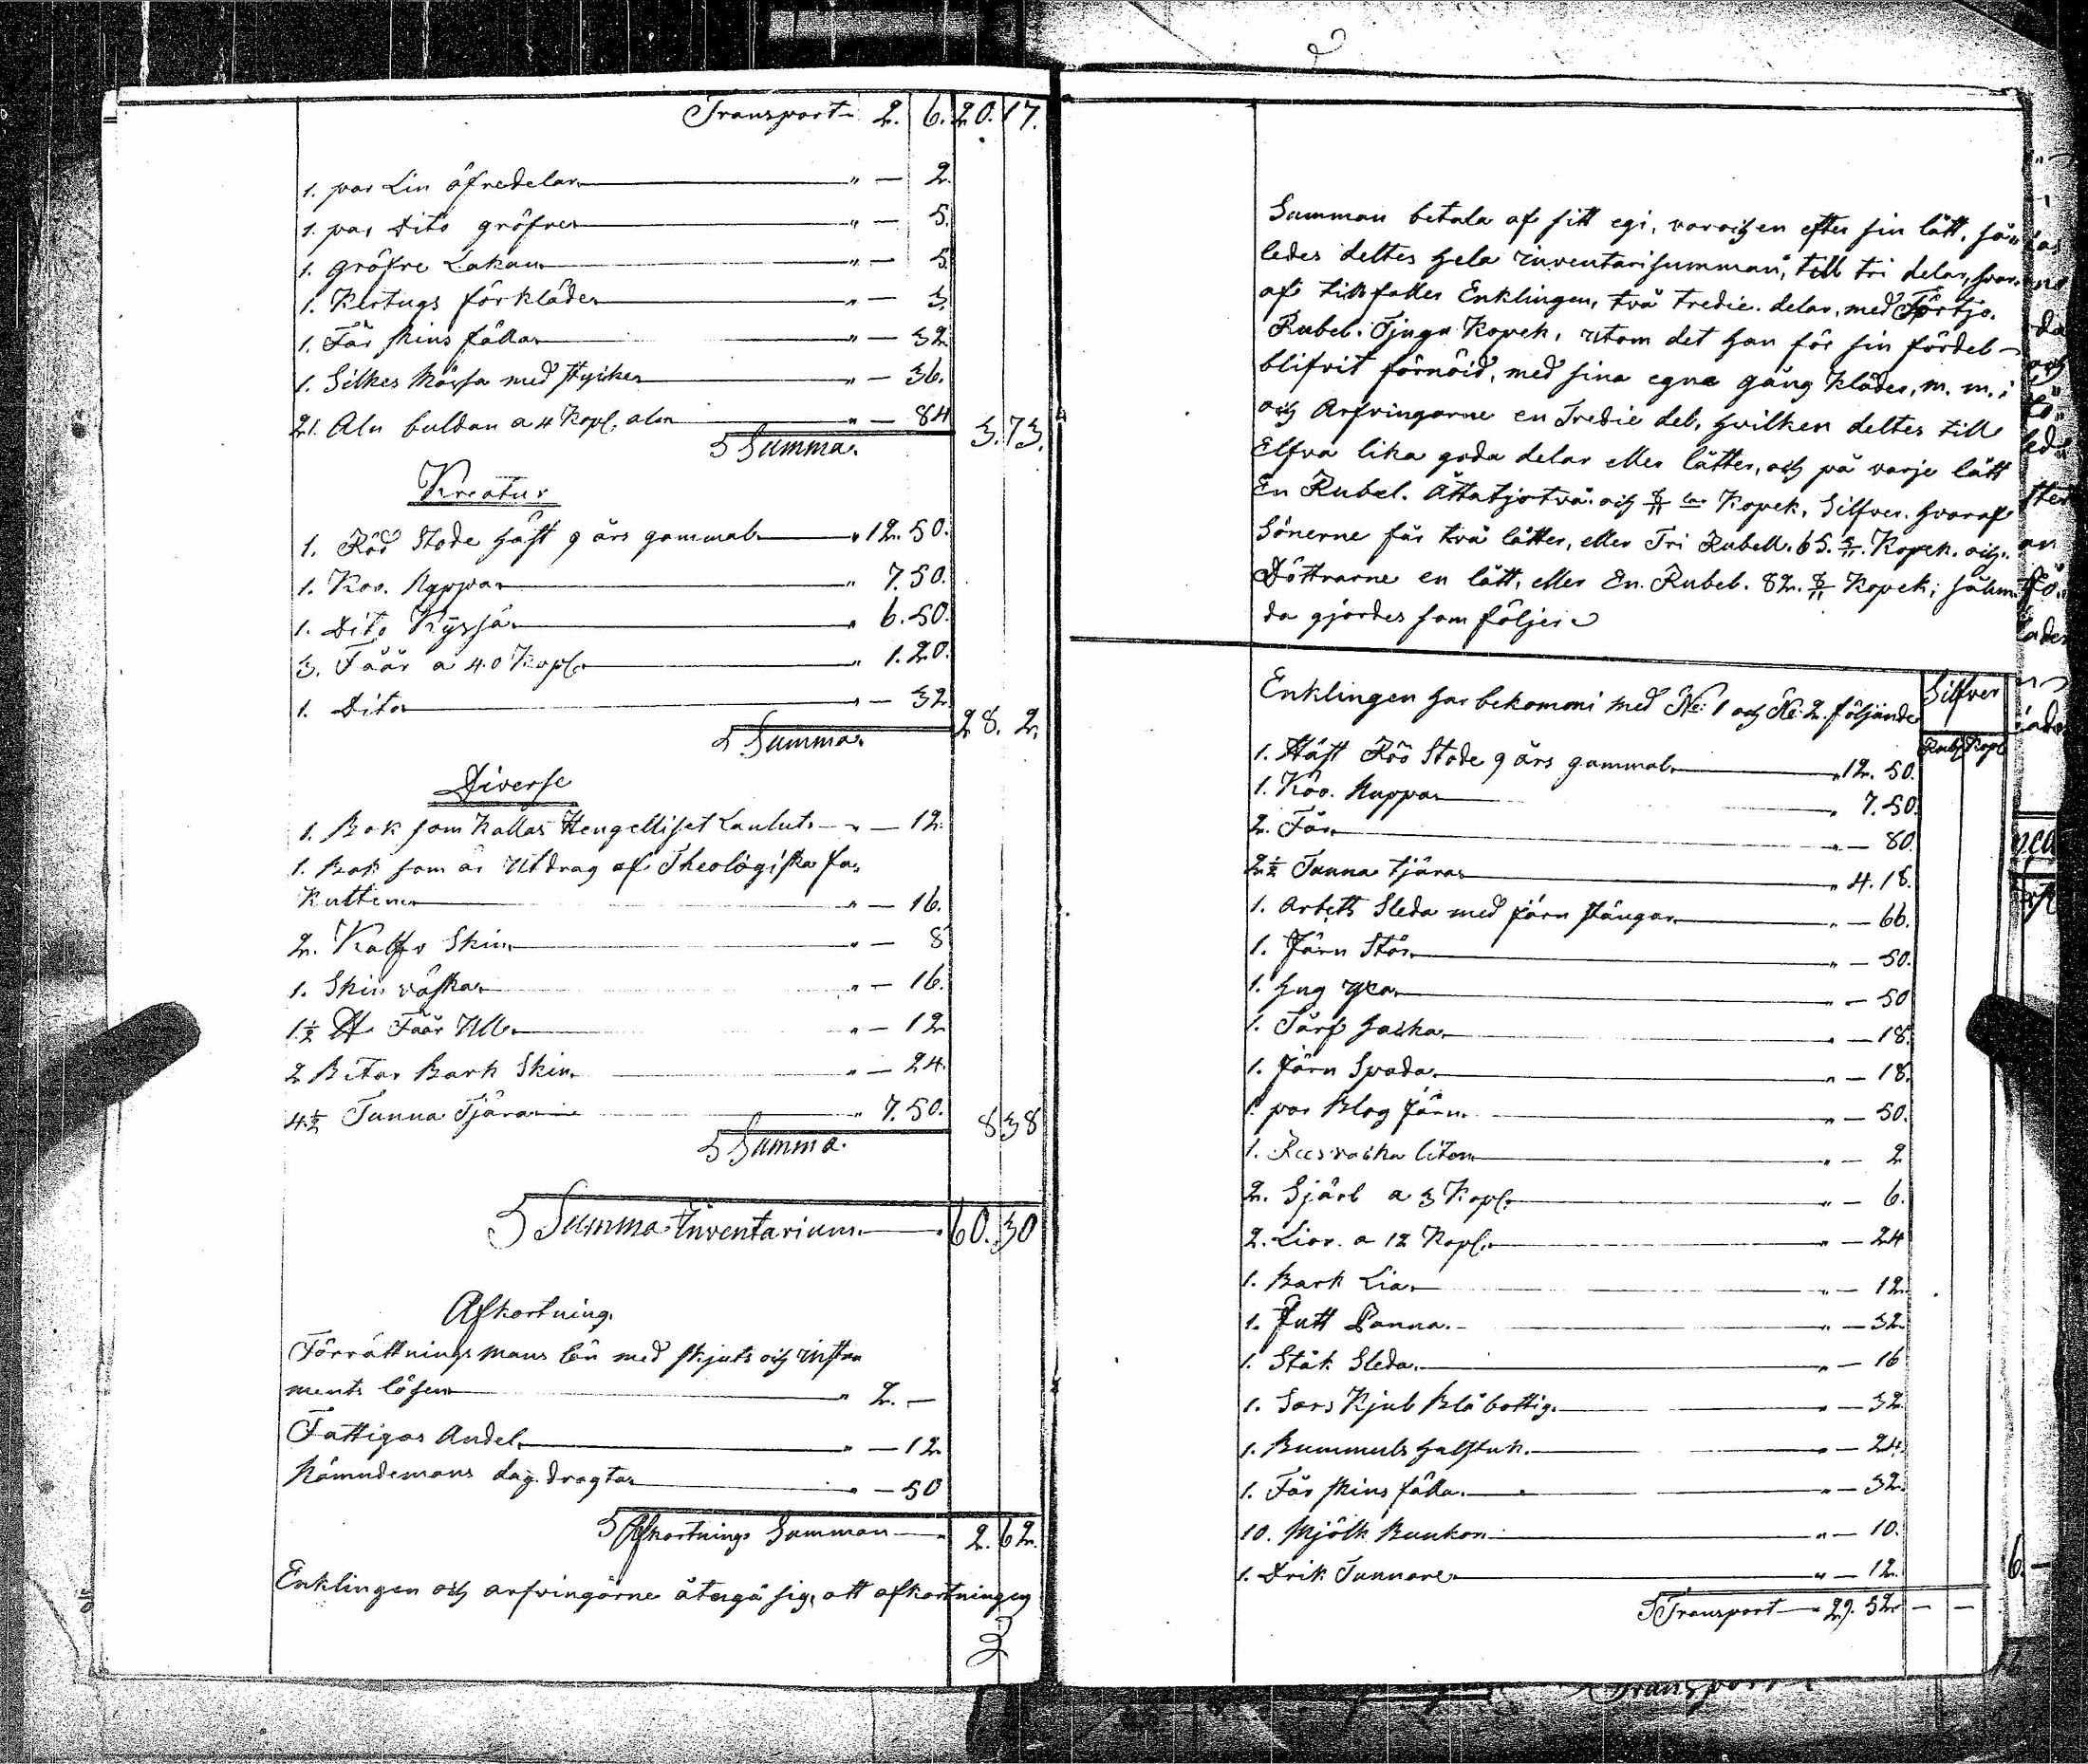 Transport 2. 6. 20. 17.
1. par Lin öfvedelar " — 2.
1. par Dito gröfver " — 5.
1. gröfre Lakan " — 5.
1. förkläder " — 3.
1. Får skins fälla " — 32
1. Silkes Mössa med stycker " — 36.
21. Aln buldan a 4 Kop. aln " — 84
Summa. 3. 73.
Kreatur
1. Röd Stode häst 9 års gammal " 12. 50.
1. Koo. " 7. 50.
1. Dito " 6. 50.
3. Fåår a 40 Kop. " 1. 20.
1. Dito " — 32
Summa. 28. 2.
Diverse
1. Bok som kallas Hengelliset Laulut " — 12.
1. Bok som är Utdrag af Theologiska fa-
kulten " — 16.
2. Kalfv Skin " — 8
1. Skin väska " — 16.
1½ ℔ Fåår Ull " — 12
2 Bitar Bark Skin " — 24.
4½ Tunna Tjära " 7. 50.
Summa. 8 38
Summa Inventarium 60. 30
Afkortning.
Förrättnings mans lön med skjuts och instru
ments lösen " 2. —
Fattigas Andel " — 12
Nämndemans dag dragtar " — 50
Afkortnings Summan 2. 62.
Enklingen och arfvingarne åtagå sig, att afkortningen
2
Summan betala af sitt egi, varoch en efter sin lått, så-
ledes deltes hela inventarisumman, till tri delar, hvar
af tillfaller Enklingen, två tredie delar, med Förtjo.
Rubel. Tjugu Kopek, utom det han för sin fördel
blifvit förnöid, med sina egna gång kläder, m. m.;
och Arfvingarne en Tredie del, hvilken deltes till
Elfva lika goda delar eller låtter, och på varje lått
En Rubel. Åttatjotvå och 8/11 Kopek. Silfver. hvaraf
Sönerne får två låtter, eller Tri Rubell. 65. 5/11. Kopek. och
Döttrarne en lått, eller En. Rubel. 82. 8/11 Kopek;
da gjordes som följer
Enklingen har bekommi med No: 1 och No: 2. följande
Silfver
Rub Kop
1. Häst Röö Stode 9 års gammal " 12. 50.
1. Koo. " 7. 50.
2. Får " — 80.
2½ Tunna tjära " 4. 18.
1. Arbets Sleda med järn stängar " — 66.
1. Järn Stör " — 50.
1. hug yxa " — 50
1. Tärf hacka " — 18.
1. Järn Spada " — 18.
1. par Plog Järn " — 50.
1. liten " — 2
2. a 3 Kop. " — 6.
2. Liar. a 12 Kop. " — 24
1. Bark Lia " — 12.
1. Panna " — 32.
1. Ståk Sleda " — 16
1. Sars Kjul Blå bottig " — 32.
1. Bummuls halstuk " — 24.
1. Får skins fälla " — 32.
10. Mjölk Bunkor " — 10.
1. Drik Tunnare " — 12.
Transport " 29. 52. — —